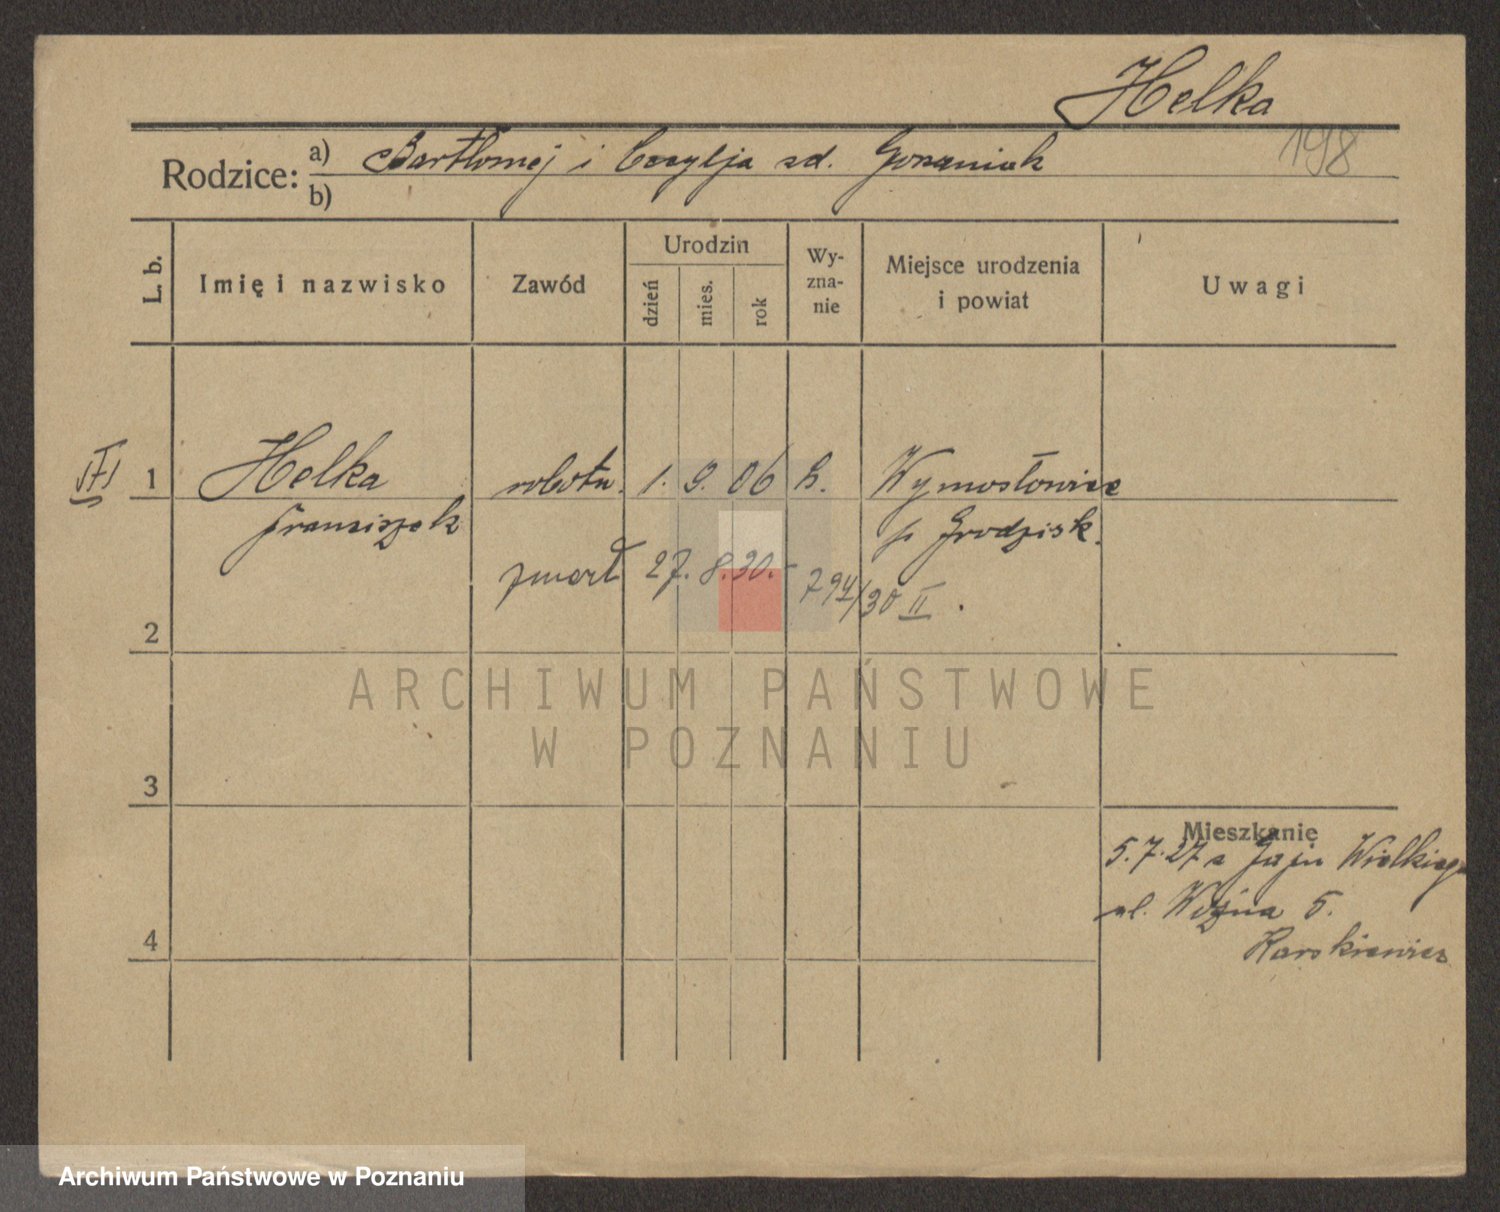 Helka
198
Rodzice: a) Bartłomej i Cecylja zd.
b)
L. b.
Imię i nazwisko
Zawód
Urodzin
dzień
mies.
rok
Wy-
zna-
nie
Miejsce urodzenia
i powiat
Uwagi
1 Helka robotn. 1. 9. 06
Franciszek p Grodzisk.
zmarł 27. 8. 30. - 794/30 II.
2
3
4
Mieszkanie
5.7.27 z Gaju Wielkiego
ul. Woźna 5.
ARCHIWUM PAŃSTWOWE
W POZNANIU
Archiwum Państwowe w Poznaniu